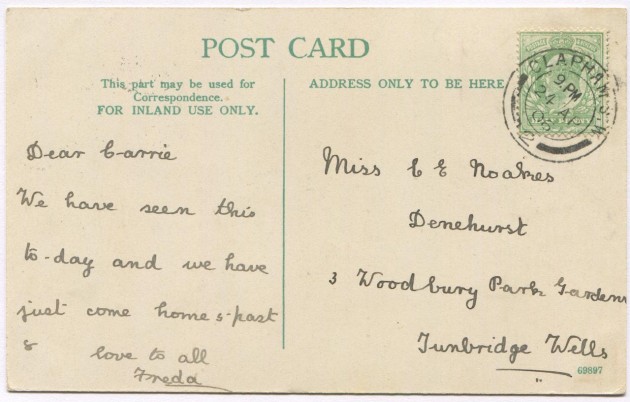 POST CARD
This part may be used for
Correspondence.
FOR INLAND USE ONLY.
ADDRESS ONLY TO BE HERE
CLAPHAM S.W.
9 PM
Dear Carrie
We have seen this
to-day and we have
just come home 5-past
8 love to all
Freda
Miss C E Noakes
Denehurst
3 Woodbury Park Gardens
Tunbridge Wells
69897